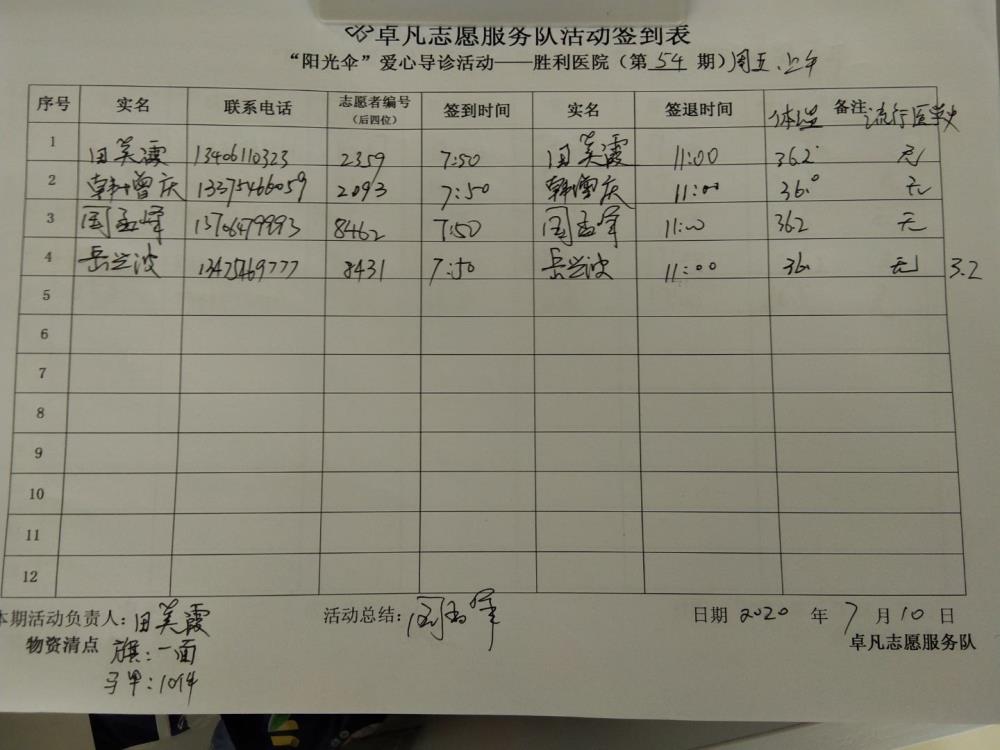 卓凡志愿服务队活动签到表
“阳光伞”爱心导诊活动——胜利医院（第 54 期）周五.上午
序号 实名 联系电话 志愿者编号（后四位） 签到时间 实名 签退时间 体温 备注 流行医学史
1 田美霞 13406110323 2359 7:50 田美霞 11:00 36.2° 无
2 韩增庆 13375466059 2093 7:50 韩增庆 11:00 36.° 无
3 周孟峰 13706479993 8462 7:50 周孟峰 11:00 362 无
4 岳兰波 13475469777 8431 7:50 岳兰波 11:00 36. 无 3.2
5
6
7
8
9
10
11
12
本期活动负责人：田美霞 活动总结：周孟峰 日期 2020 年 7 月 10 日
物资清点 旗：一面 卓凡志愿服务队
马甲：10件